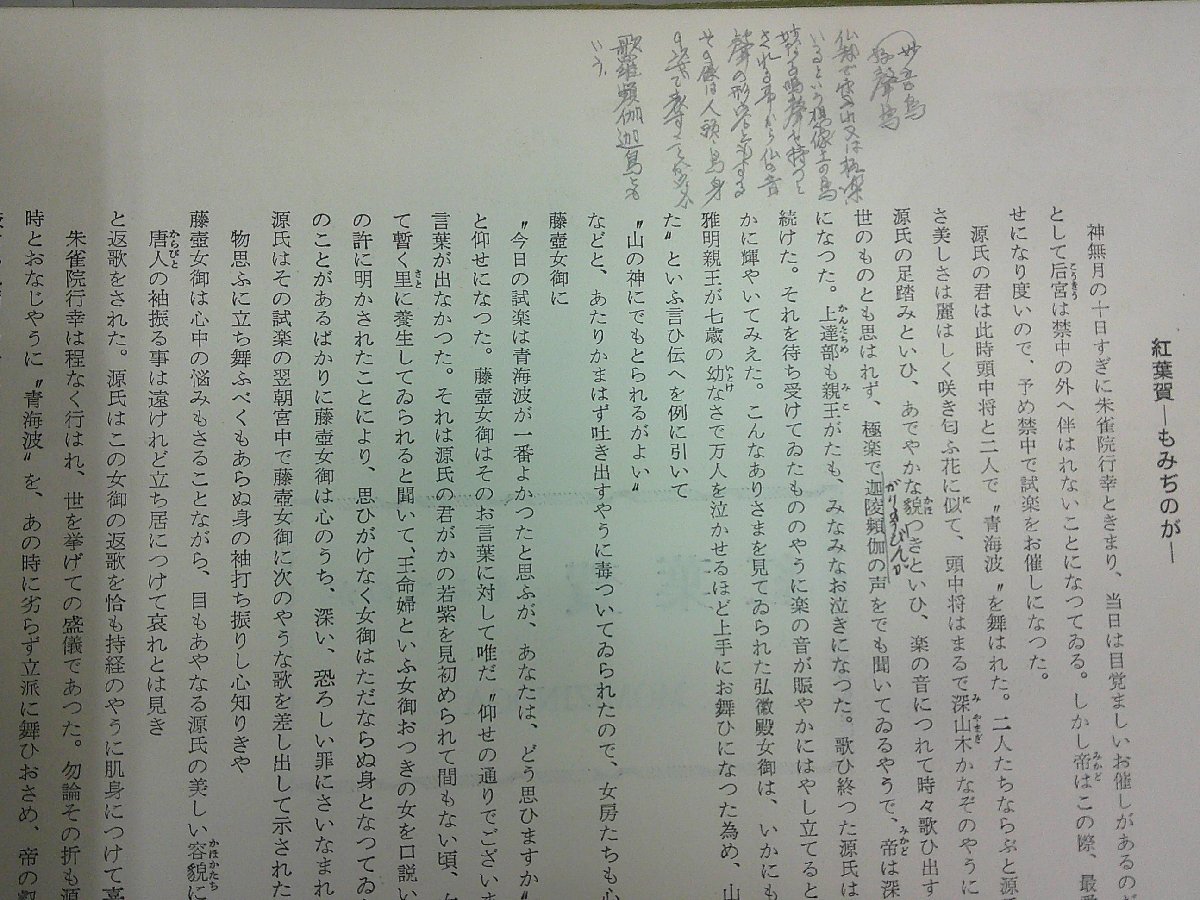 妙音鳥
好聲鳥
仏教で雪山又は極楽に
いるという想像上の鳥
妙なる鳴聲を持つと
される事から仏の音
聲の形容ともする
その像は人頭、鳥身
の姿で表すことが多い
歌羅頻伽迦鳥とも
いう。
紅葉賀―もみぢのが―
神無月の十日すぎに朱雀院行幸ときまり、当日は目覚ましいお催しがあるのだ
として后宮は禁中の外へ伴はれないことになつてゐる。しかし帝はこの際、最愛
せになり度いので、予め禁中で試楽をお催しになつた。
源氏の君は此時頭中将と二人で〝青海波〟を舞はれた。二人たちならぶと源
さ美しさは麗はしく咲き匂ふ花に似て、頭中将はまるで深山木かなぞのやうに
源氏の足踏みといひ、あでやかな貌つきといひ、楽の音につれて時々歌ひ出す
世のものとも思はれず、極楽で迦陵頻伽の声をでも聞いてゐるやうで、帝は深
になつた。上達部も親王がたも、みなみなお泣きになつた。歌ひ終つた源氏は
続けた。それを待ち受けてゐたもののやうに楽の音が賑やかにはやし立てると
かに輝やいてみえた。こんなありさまを見てゐられた弘徽殿女御は、いかにも
雅明親王が七歳の幼なさで万人を泣かせるほど上手にお舞ひになつた為め、山
た〟といふ言ひ伝へを例に引いて
〝山の神にでもとられるがよい〟
などと、あたりかまはず吐き出すやうに毒ついてゐられたので、女房たちも心
藤壺女御に
〝今日の試楽は青海波が一番よかつたと思ふが、あなたは、どう思ひますか〟
と仰せになつた。藤壺女御はそのお言葉に対して唯だ〝仰せの通りでございま
言葉が出なかつた。それは源氏の君がかの若紫を見初められて間もない頃、
て暫く里に養生してゐられると聞いて、王命婦といふ女御おつきの女を口説い
の許に明かされたことにより、思ひがけなく女御はただならぬ身となつてゐ
のことがあるばかりに藤壺女御は心のうち、深い、恐ろしい罪にさいなまれ
源氏はその試楽の翌朝宮中で藤壺女御に次のやうな歌を差し出して示された
物思ふに立ち舞ふべくもあらぬ身の袖打ち振りし心知りきや
藤壺女御は心中の悩みもさることながら、目もあやなる源氏の美しい容貌に
唐人の袖振る事は遠けれど立ち居につけて哀れとは見き
と返歌をされた。源氏はこの女御の返歌を恰も持経のやうに肌身につけて喜
朱雀院行幸は程なく行はれ、世を挙げての盛儀であつた。勿論その折も源
時とおなじやうに〝青海波〟を、あの時に劣らず立派に舞ひおさめ、帝の叡